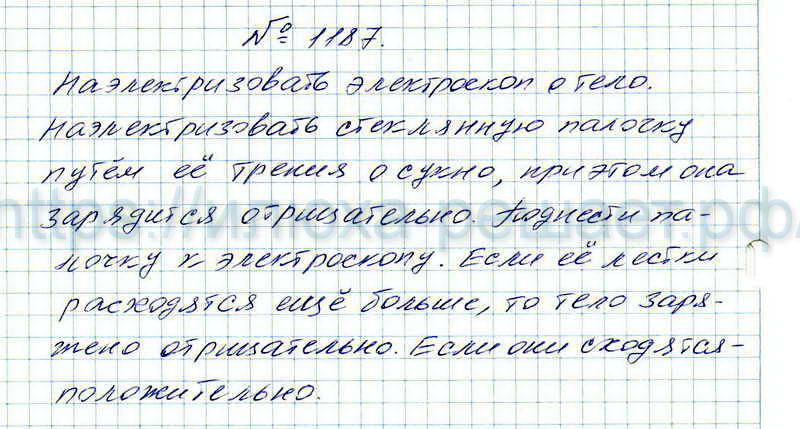 № 1187.
Наэлектризовать электроскоп о тело.
Наэлектризовать стеклянную палочку
путём её трения о сукно, при этом она
зарядится отрицательно. Поднести па-
лочку к электроскопу. Если её лестки
расходятся ещё больше, то тело заря-
жено отрицательно. Если они сходятся-
положительно.